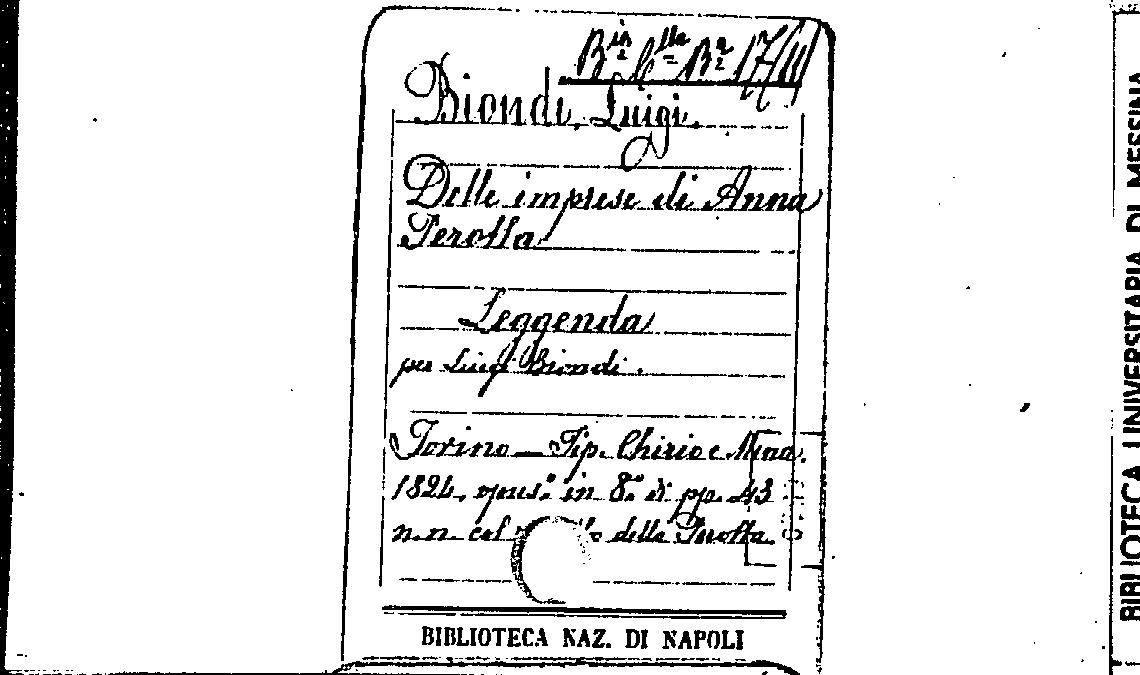 Biondi, Luigi.
Delle imprese di Anna
Perotta
Leggenda
per Luigi Biondi.
Torino - Tip. Chirio e Mina.
1824, opus.º in 8.º di pp. 43
n.n. col della Perotta.
BIBLIOTECA NAZ. DI NAPOLI
BIBLIOTECA UNIVERSITARIA DI MESSINA